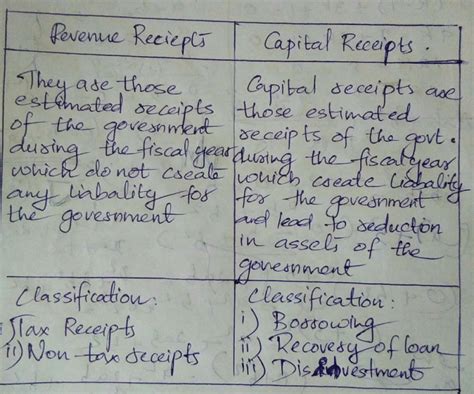 Revenue Reciepts
They are those
estimated receipts
of the government
during the fiscal year
which do not create
any liabality for
the government
Classification:
i) Tax Receipts
ii) Non tax receipts
Capital Receipts.
Capital receipts are
those estimated
receipts of the govt.
during the fiscal year
which create liabality
for the government
and lead to reduction
in assets of the
government
Classification:
i) Borrowing
ii) Recovery of loan
iii) Disinvestment